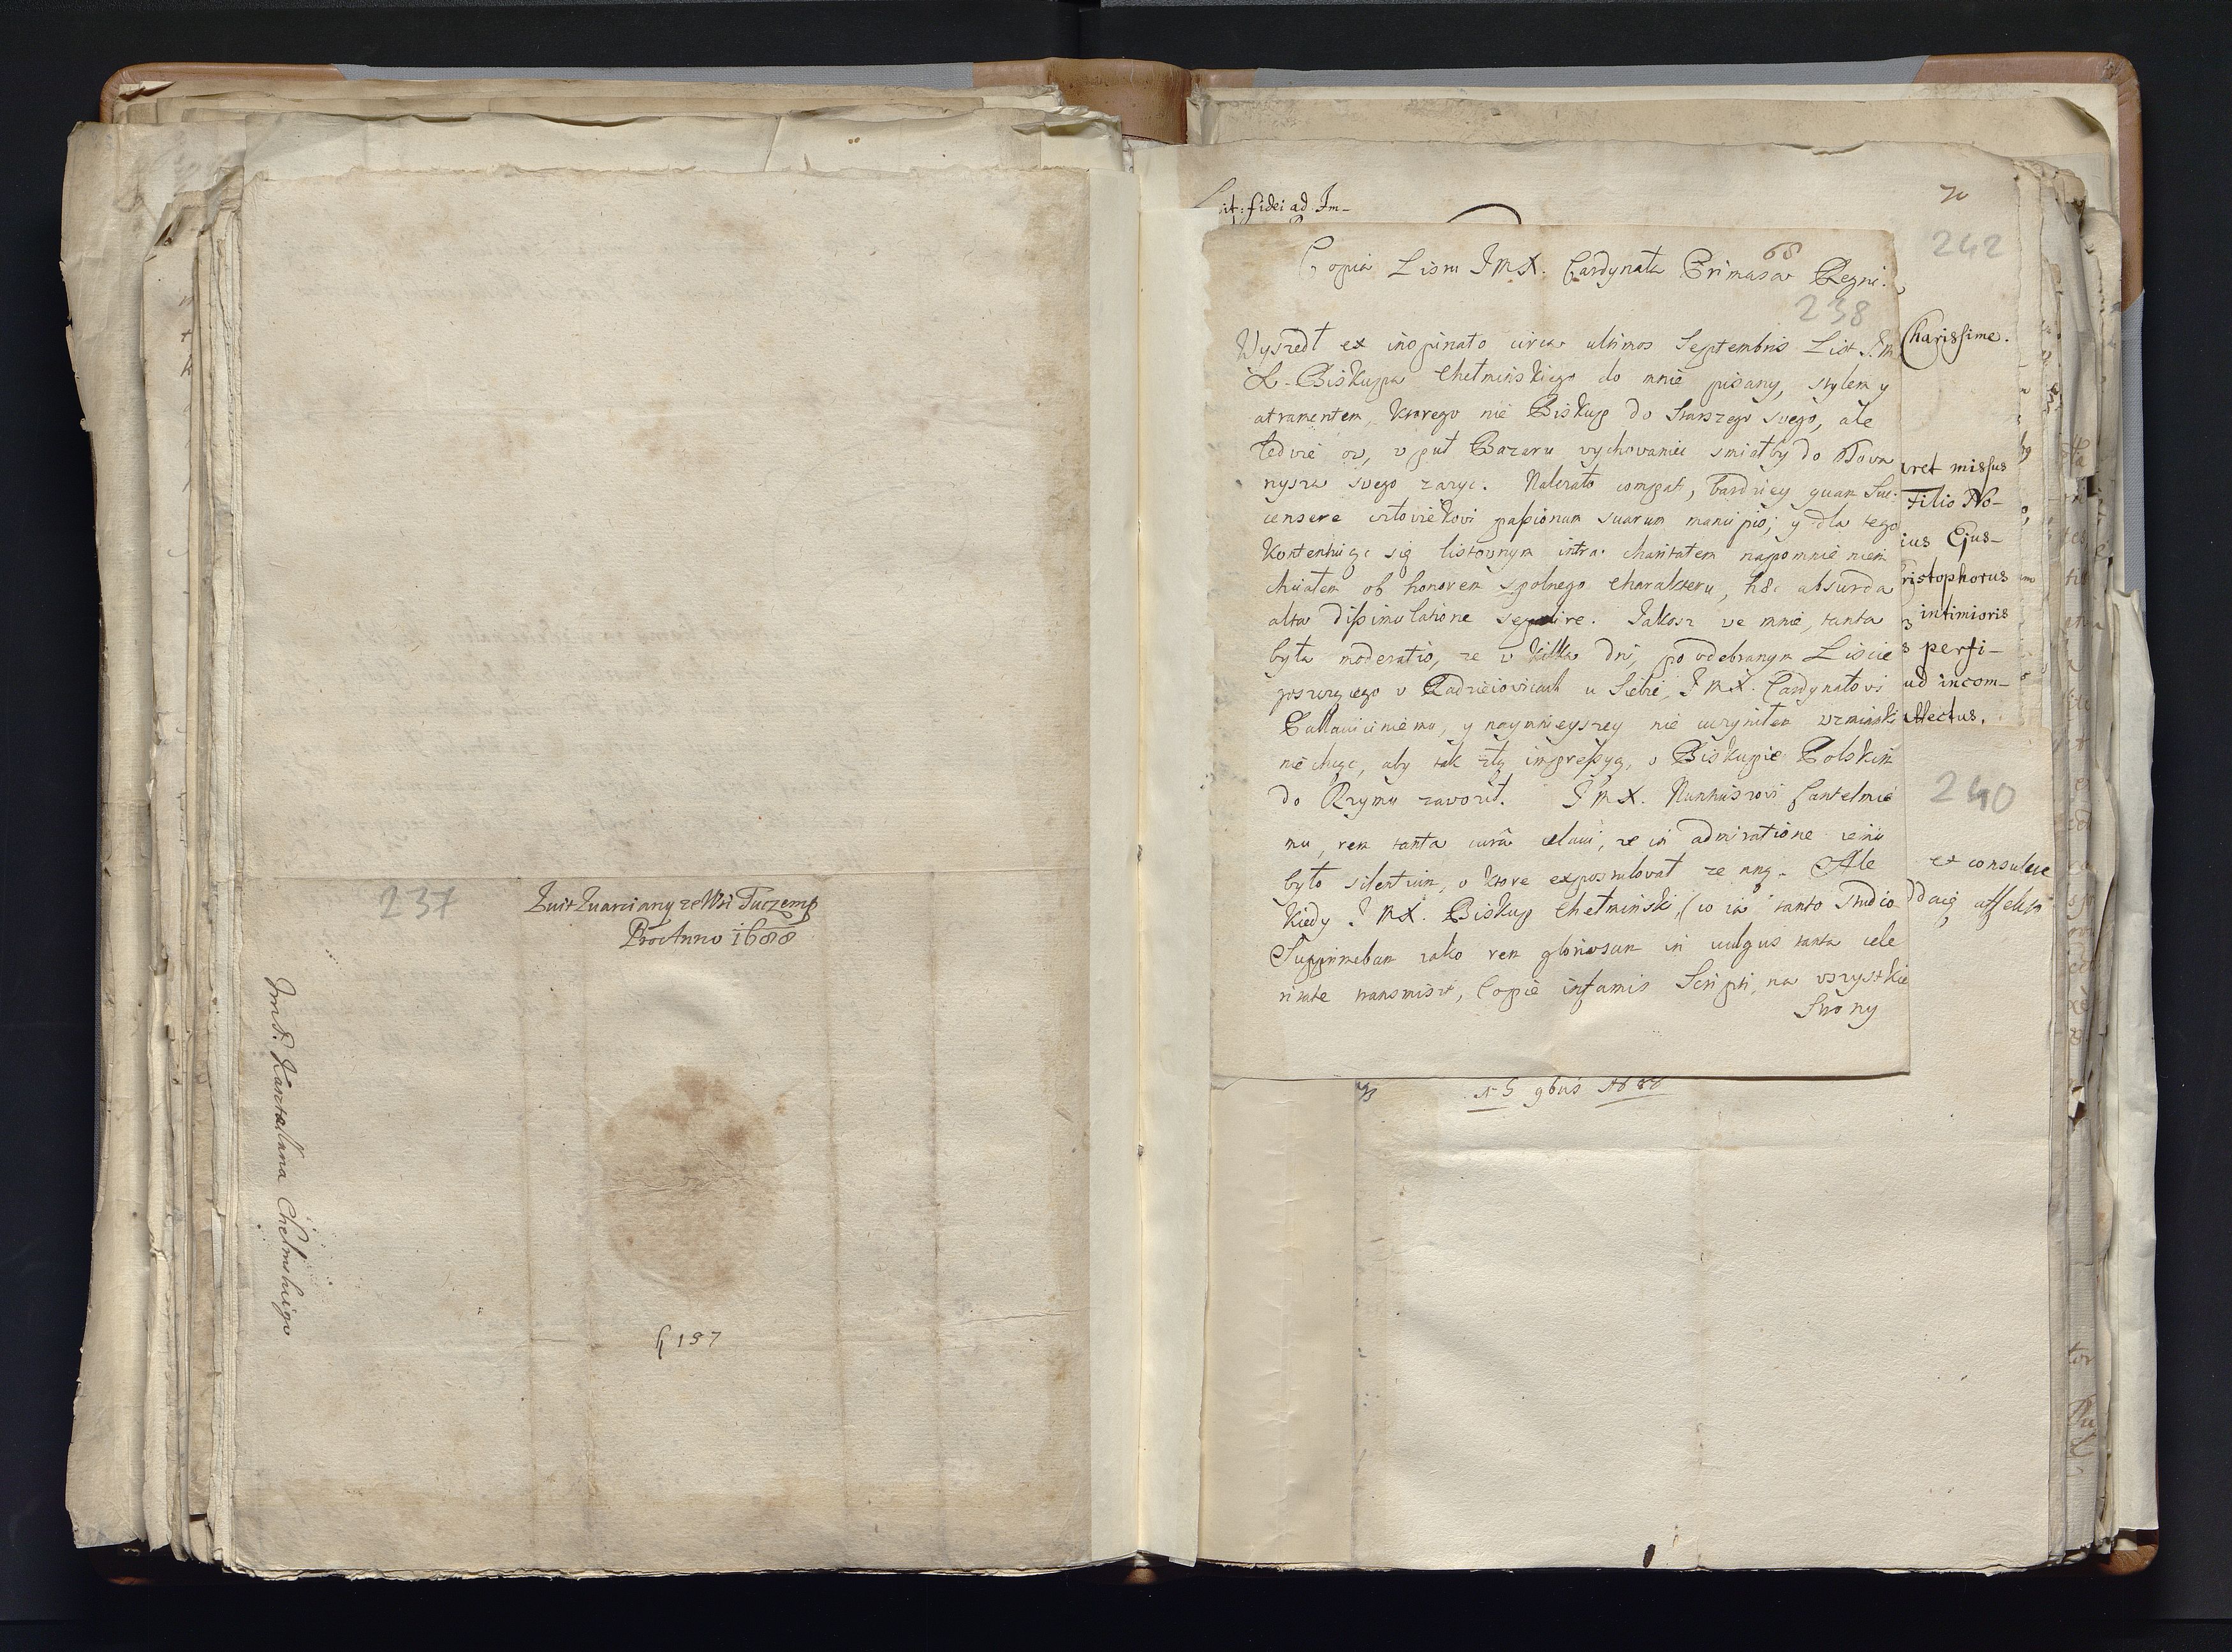 237
Kwit Kwarciany ze Wsi Tuczemp
Pro Anno 1688
ImP. Kasztellana Chelmskiego
187
it: fidei ad Im-
70
242
68
Copia Listu JMX. Cardynała Primasa Regni.
238
Wyszedł ex inopinato circa ultimos Septembris List J.M
X. Biskupa Chełmińskiego do mnie pisany, stylem y
atramentem, ktorego nie Biskup do Starszego swego, ale
ledwie ow, w puł Bazaru wychowaniec smiałby do Towa
rzysza swego zażyc. Należało compati, bardziey quam Suc:
censere człowiekowi passionum suarum mancipio; y dla tego
kontentuiąc się listownym intra charitatem napomnieniem
chciałem ob honorem spolnego charakteru, hæc absurda
alta dissimulatione sepelire. Jakosz we mnie, tanta
była moderatio, ze w kilka dni, po odebranym Liscie
goszczącego w Radzieiowicach u Siebie, JMX. Cardynałowi
Pallaviciniemu, y naymnieyszey nie uczyniłem wzmianki
nie chcąc, aby tak złą impressyą, o Biskupie Polskim
do Rzymu zawoził. JMX. Nunciuszowi Cantelmie
mu, rem tanta cura celavi, ze in admiratione iemu
było silentium, o ktore expostulował ze mną. Ale
kiedy JMX. Biskup Chełmiński, (co ia tanto studio
Supprimebam iako rem gloriosam in vulgus tanta cele
ritate transmisit, Copie infamis Scripti, na wszystkie
Strony
Charissime.
missus
Filio No-
ius Ejus-
ristophorus
intimioris
s perfi-
ud incom-
ffectus.
240
et consulere
15 9bris 1688